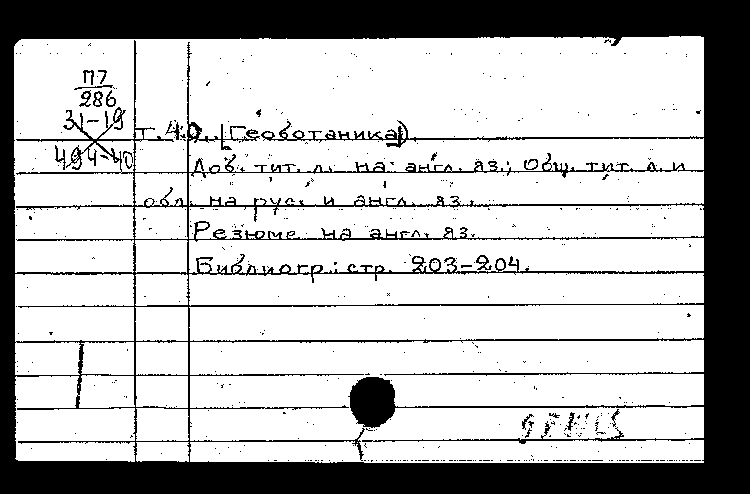 П7
286
31-19
494-40
т. 40. [Геоботаника]).
Доб. тит. л. на англ. яз.; Общ. тит. л. и
обл. на рус. и англ. яз.
Резюме на англ. яз.
Библиогр.: стр. 203-204.